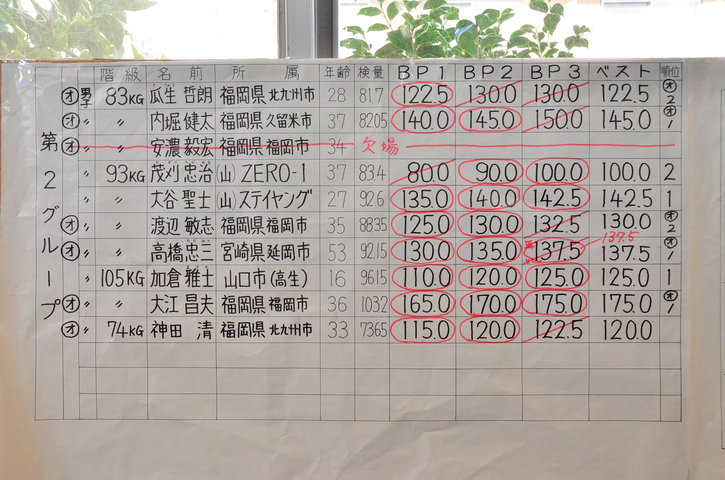 階級 名前 所属 年齢 検量 BP1 BP2 BP3 ベスト 順位
第2グループ
オ 男子 83KG 瓜生 哲朗 福岡県 北九州市 28 81.7 122.5 130.0 130.0 122.5 オ2
オ 〃 〃 内堀 健太 福岡県 久留米市 37 82.05 140.0 145.0 150.0 145.0 オ1
オ 〃 〃 安濃 毅宏 福岡県 福岡市 34 欠場
〃 93KG 茂刈 忠治 (山) ZERO-1 37 83.4 80.0 90.0 100.0 100.0 2
〃 〃 大谷 聖士 (山) ステイヤング 27 92.6 135.0 140.0 142.5 142.5 1
オ 〃 〃 渡辺 敏志 福岡県 福岡市 35 88.35 125.0 130.0 132.5 130.0 オ2
オ 〃 〃 高橋 忠三 宮崎県 延岡市 53 92.15 130.0 135.0 137.5 137.5 137.5 オ1
〃 105KG 加倉 雅士 山口市 (高生) 16 96.15 110.0 120.0 125.0 125.0 1
オ 〃 〃 大江 昌夫 福岡県 福岡市 36 103.2 165.0 170.0 175.0 175.0 オ1
オ 〃 74KG 神田 清 福岡県 北九州市 33 73.65 115.0 120.0 122.5 120.0